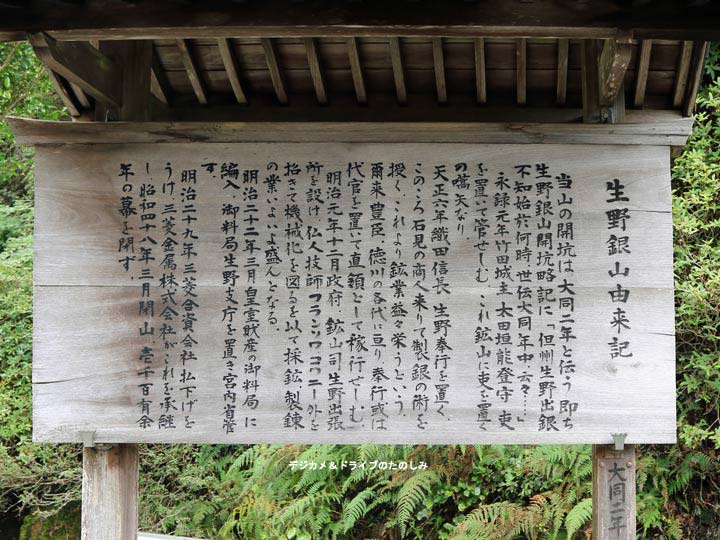 生野銀山由来記
当山の開坑は大同二年と伝う 即ち
生野銀山開坑略記に「但州生野出銀
不知始於何時世伝大同年中云々……」
永録元年竹田城主 太田垣能登守 吏
を置いて管せしむ これ鉱山に吏を置く
の嚆矢なり
天正六年織田信長 生野奉行を置く。
このころ石見の商人来りて製銀の術を
授く、これより鉱業益々栄うという。
爾来、豊臣、徳川の各代に亘り、奉行或は
代官を置いて直領として稼行せしむ。
明治元年十二月政府、鉱山司生野出張
所を設け、仏人技師フランソワコワニー外を
招きて機械化を図るを以て採鉱製錬
の業いよいよ盛んとなる。
明治二十二年三月 皇室財産の御料局に
編入 御料局生野支庁を置き宮内省管
す。
明治二十九年三菱合資会社 払下げを
うけ 三菱金属株式会社がこれを承継
し、昭和四十八年三月閉山 壱千百有余
年の幕を閉ず。
大同二年
デジカメ＆ドライブのたのしみ